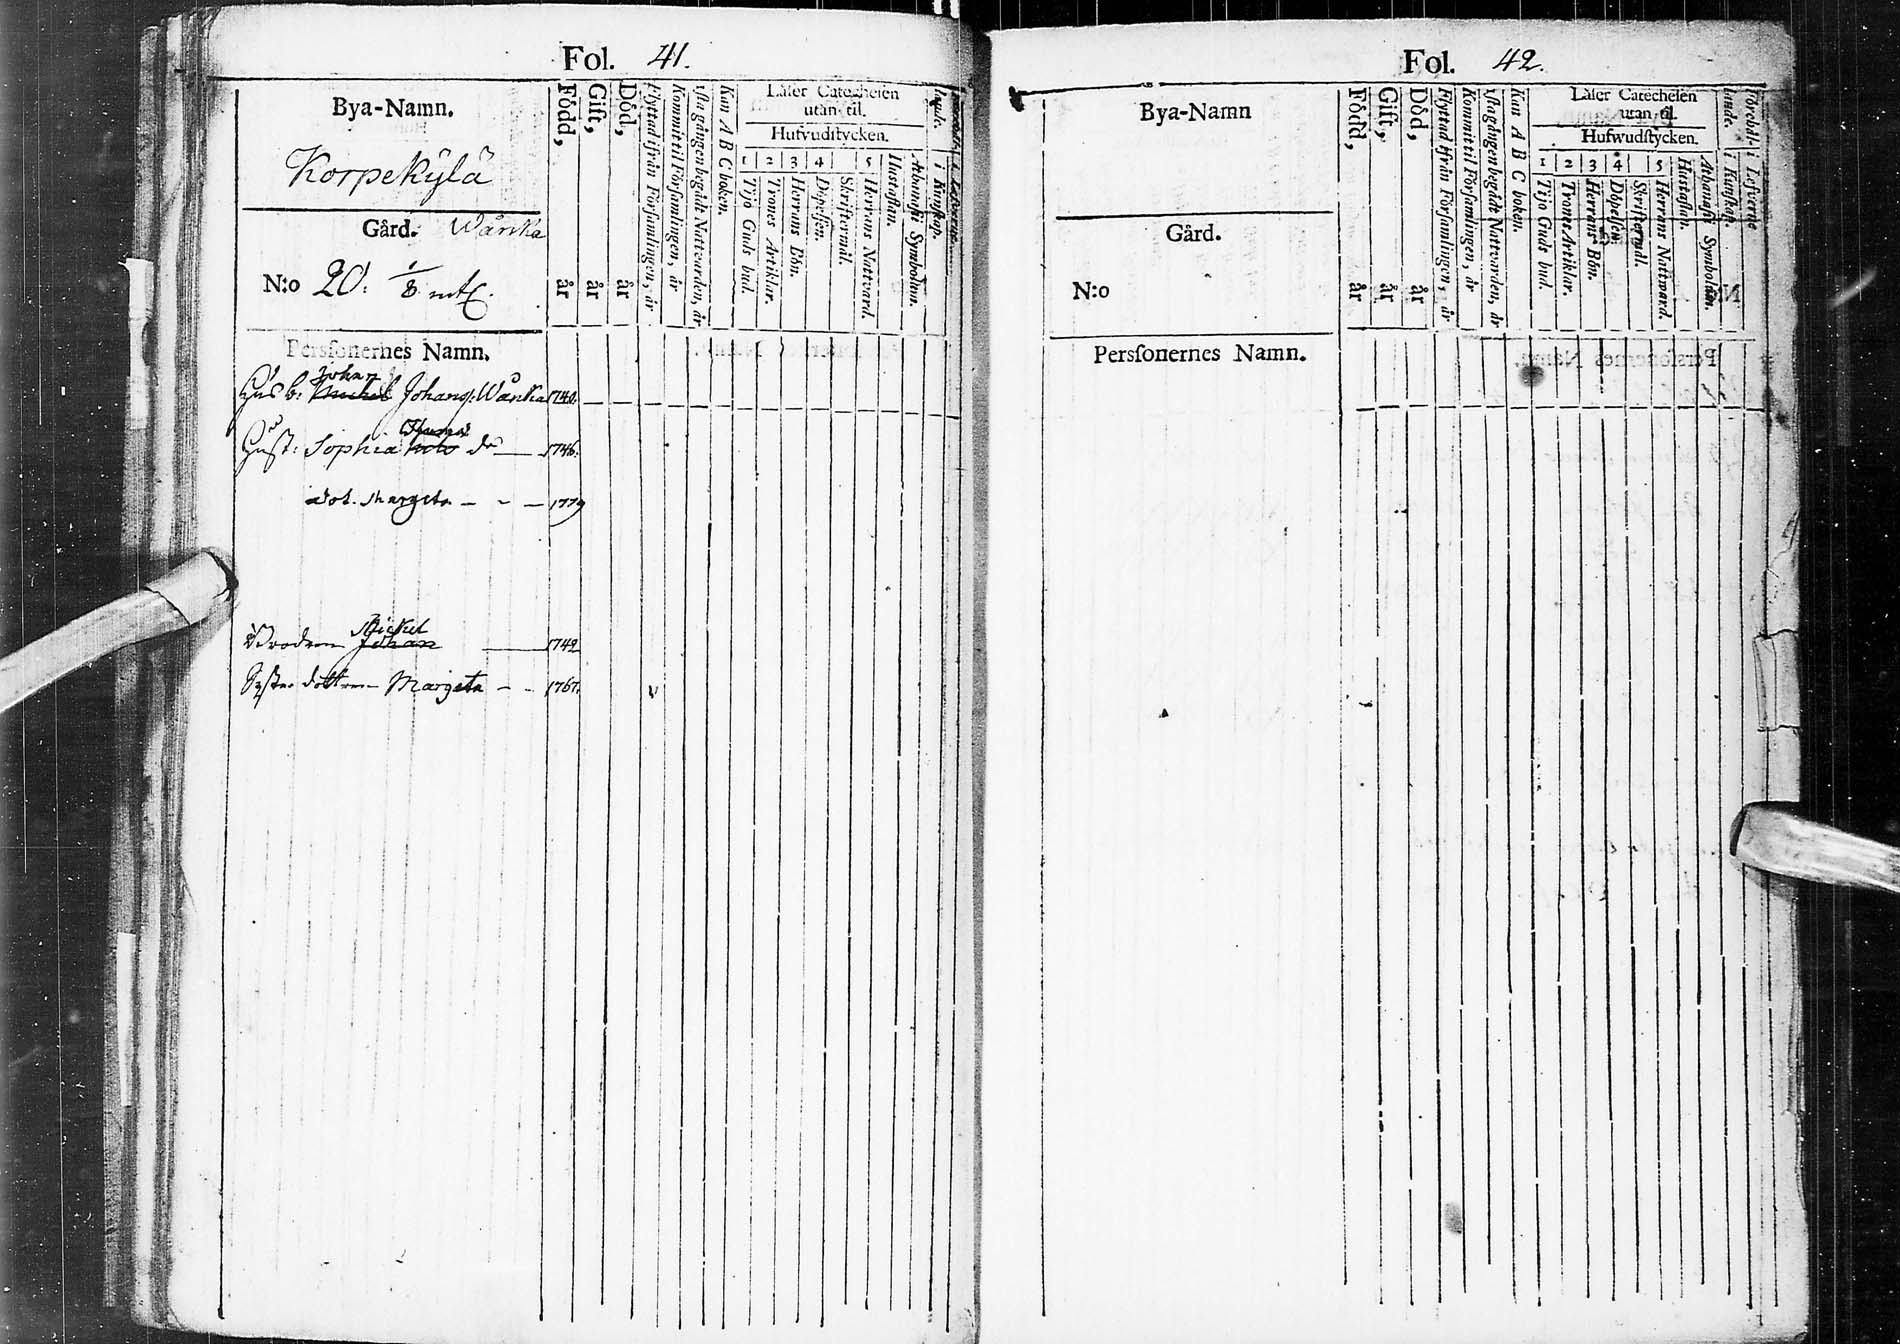 Fol. 41.
Bya-Namn.
Korpekylä
Gård. Wånka
N:o 20. 1/8 mtl.
Född, år
Gift, år
Död, år
Flyttad ifrån Församlingen, år
Kommit til Församlingen, år
1sta gången begådt Nattvarden, år
Kan A B C boken.
Läser Catechesen
utan til.
Hufvudstycken.
1 2 3 4 5
Tijo Guds bud.
Trones Artiklar.
Herrans Bön.
Döpelsen.
Skriftermål.
Herrans Nattvard.
Hustaflan.
Athanasii Symbolum.
i Kunskap.
i Lefverne
Personernes Namn.
Johan
Husb: Michel Johans: Wånka 1740.
Thomæ
Hust: Sophia do 1746.
dot. Margeta - - - 1779
Mickel
Brodren Johan 1742
Syster dottren Margeta - - 1767.
Fol. 42.
Bya-Namn
Gård.
N:o
Född, år
Gift, år
Död, år
Flyttad ifrån Församlingen, år
Kommit til Församlingen, år
1sta gången begådt Nattvarden, år
Kan A B C boken.
Läser Catechesen
utan til.
Hufwudstycken.
1 2 3 4 5
Tijo Guds bud.
Trones Artiklar.
Herrans Bön.
Döpelsen.
Skriftermål.
Herrans Nattward.
Hustaflan.
Athanasii Symbolum.
i Kunskap.
i Lefverne
Personernes Namn.